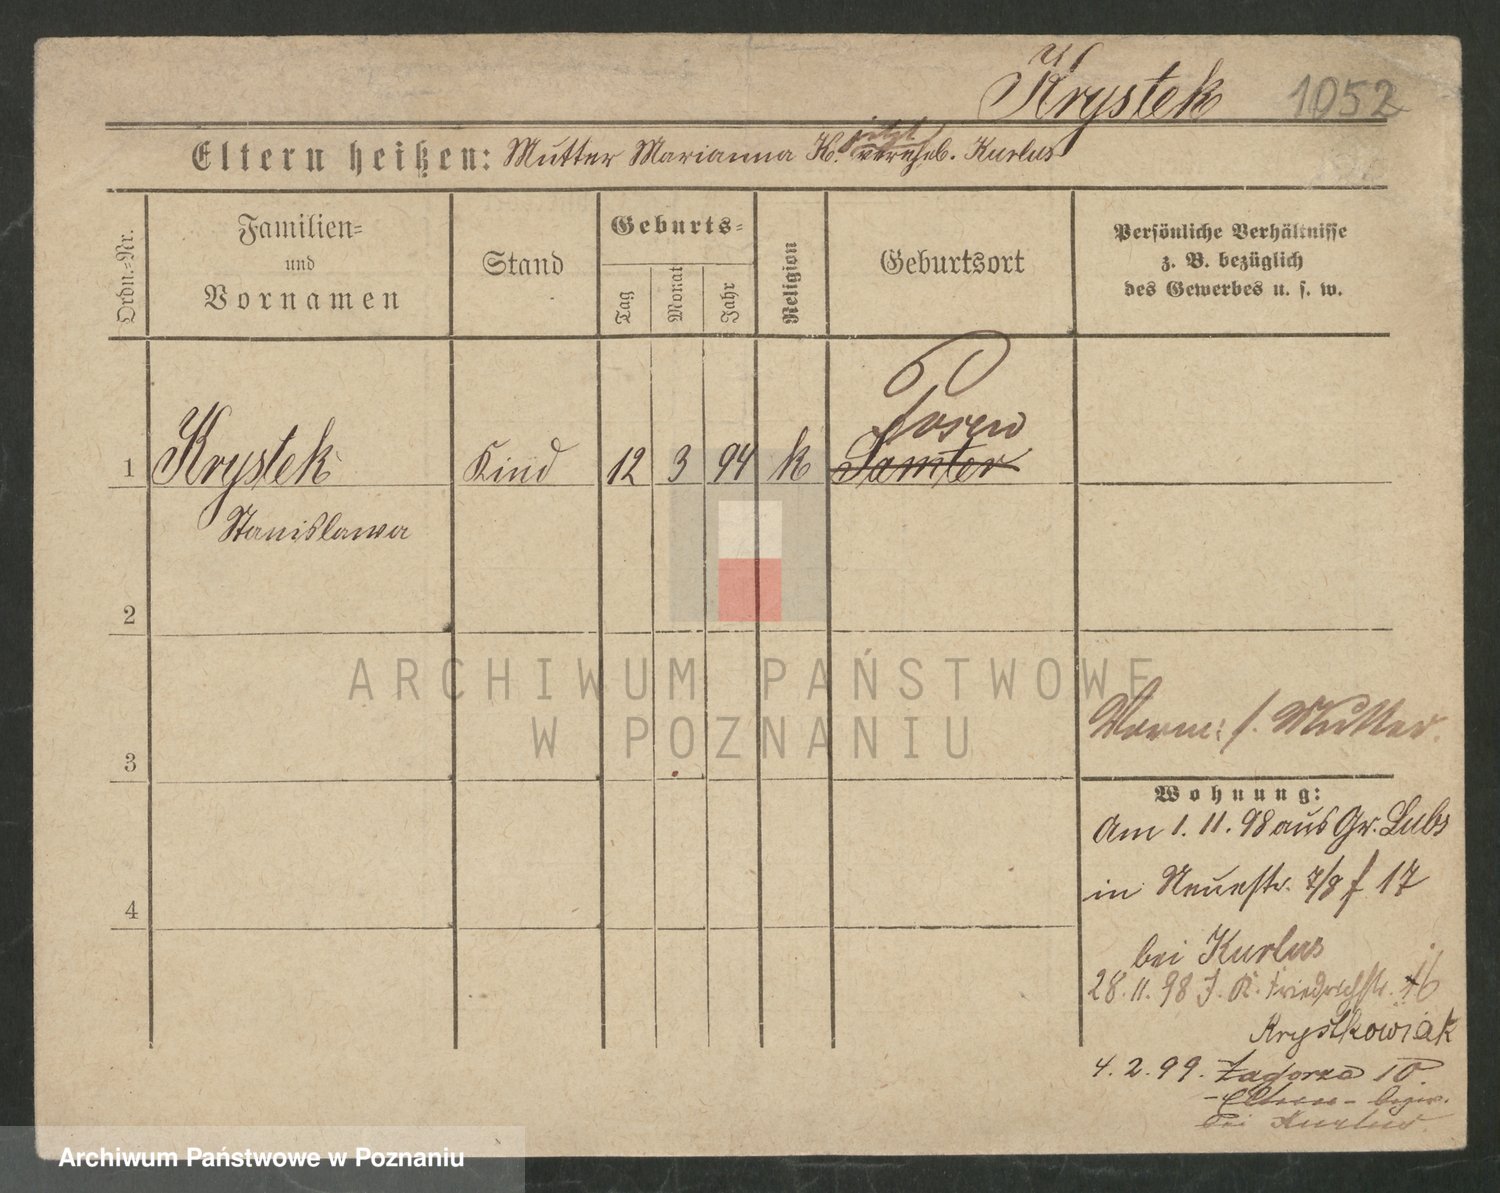 Krystek 1052
Eltern heißen: Mutter Marianna K. jetzt vereh. Kurlus
Ordn.=Nr.
Familien=
und
Vornamen
Stand
Geburts=
Tag
Monat
Jahr
Religion
Geburtsort
Persönliche Verhältnisse
z. B. bezüglich
des Gewerbes u. s. w.
Posen
1 Krystek Kind 12 3 94 k Samter
Stanislawa
2
ARCHIWUM PAŃSTWOWE
W POZNANIU
Vorm: s. Mutter.
3
Wohnung:
Am 1. 11. 98 aus Gr. Lubs
in Neuestr. 7/8 f 17
4
bei Kurlus
28. 11. 98 J. K. Friedrichstr. 16
Krystkowiak
4. 2. 99. Zagorze 10.
bei Kurlus.
Archiwum Państwowe w Poznaniu